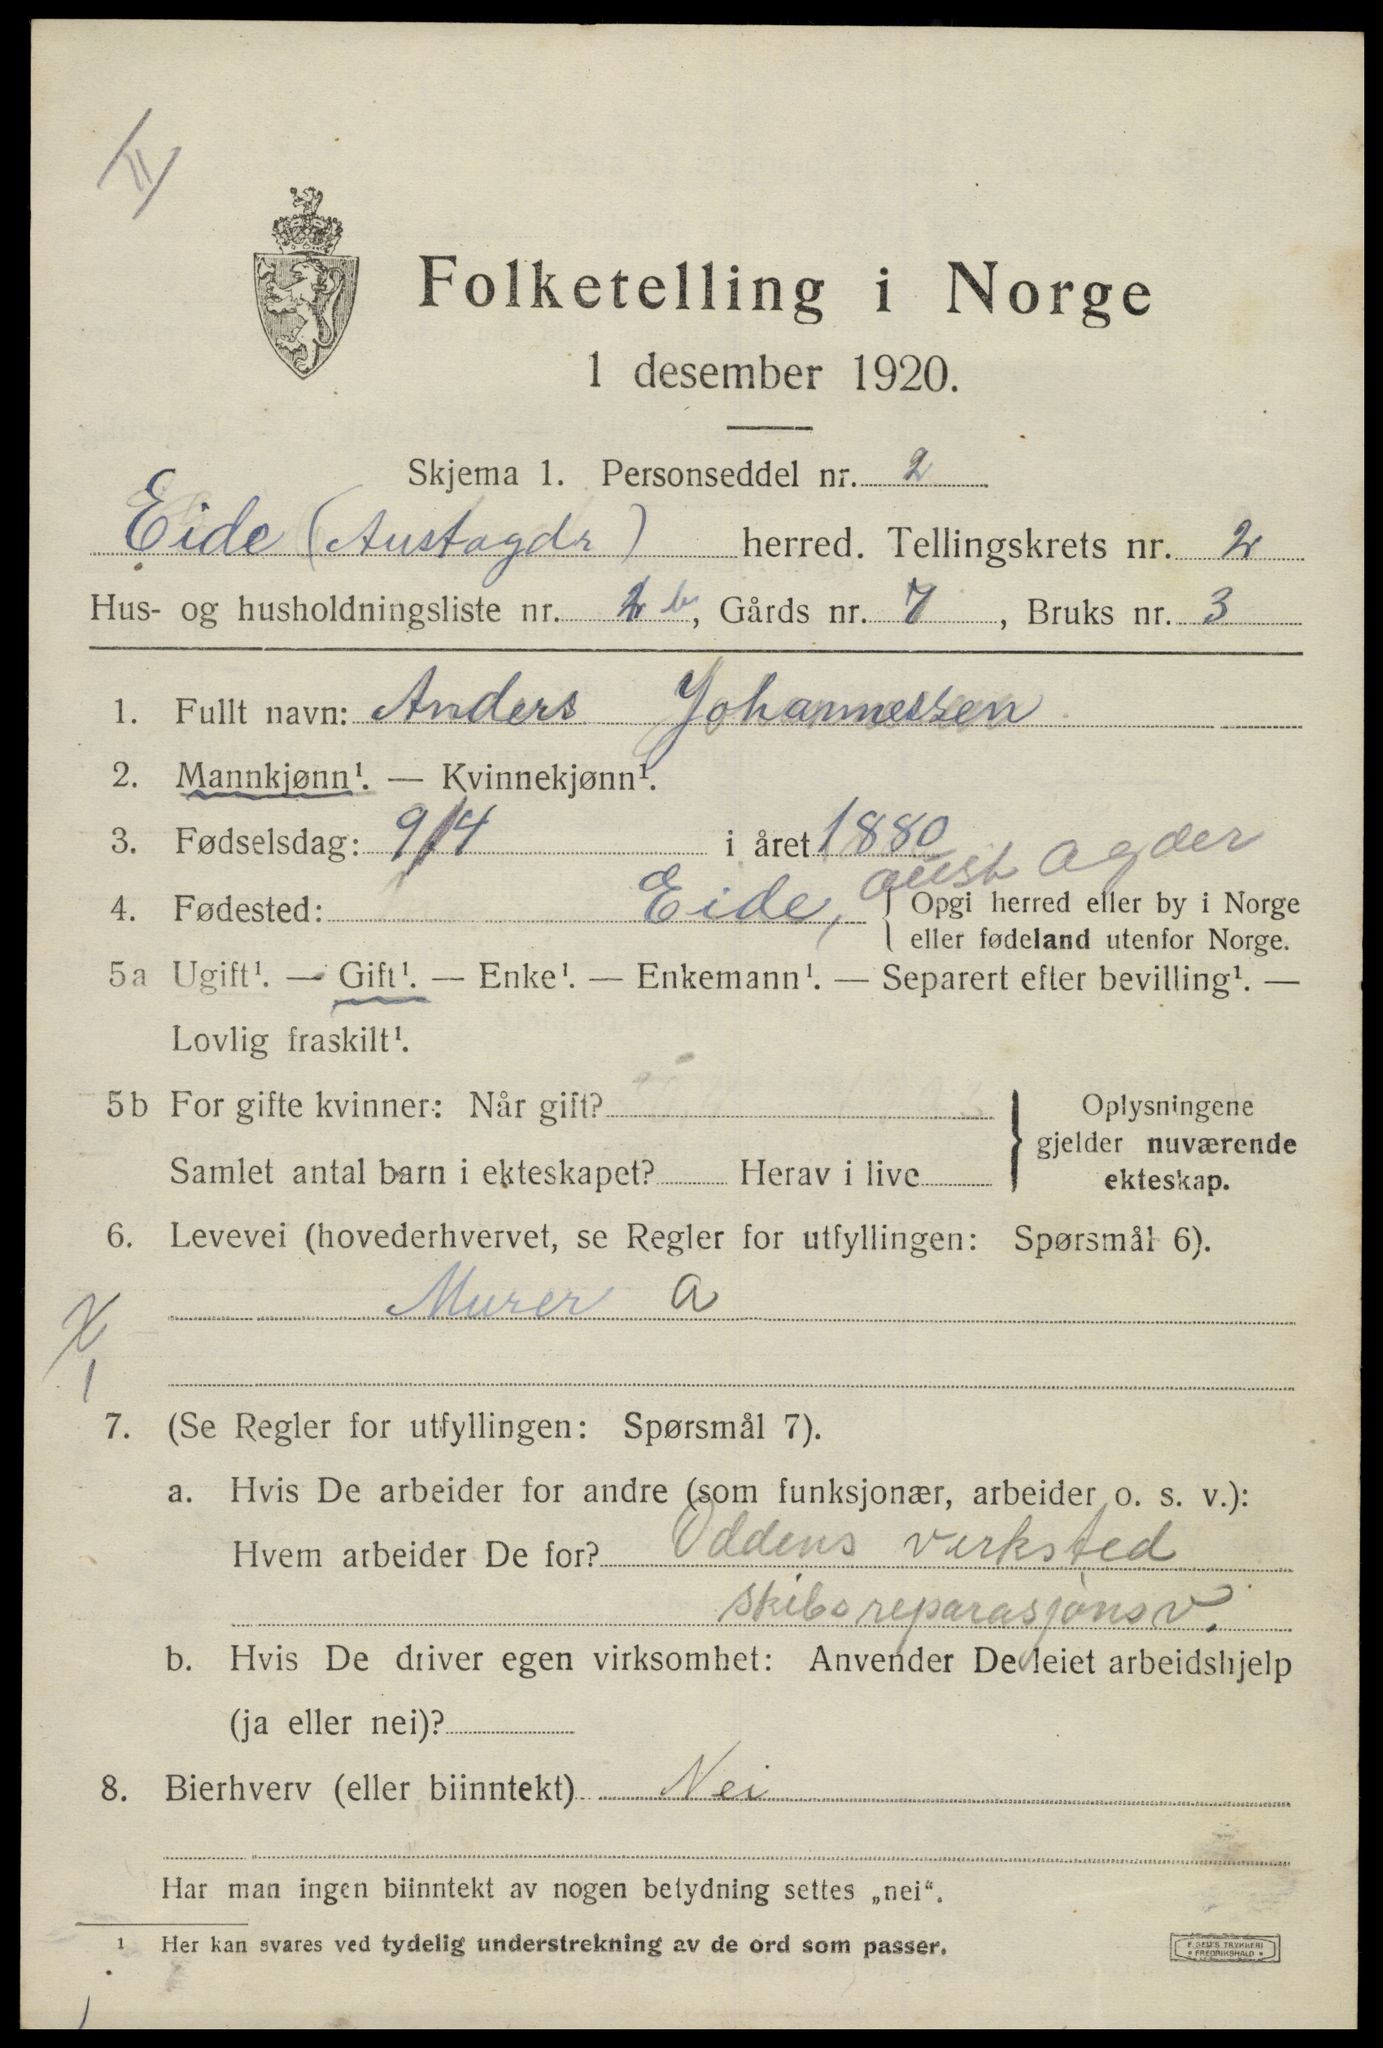 II
Folketelling i Norge
1 desember 1920.
Skjema 1. Personseddel nr. 2
Eide (Austagdr) herred. Tellingskrets nr. 2
Hus- og husholdningsliste nr. 2 b, Gårds nr. 7, Bruks nr. 3
1. Fullt navn: Anders Johannessen
2. Mannkjønn¹. — Kvinnekjønn¹.
3. Fødselsdag: 9/4 i året 1880
aust Agder
4. Fødested: Eide, { Opgi herred eller by i Norge
eller fødeland utenfor Norge.
5a Ugift¹. — Gift¹. — Enke¹. — Enkemann¹. — Separert efter bevilling¹. —
Lovlig fraskilt¹.
5b For gifte kvinner: Når gift? Oplysningene
gjelder nuværende
Samlet antal barn i ekteskapet? Herav i live ekteskap.
6. Levevei (hovederhvervet, se Regler for utfyllingen: Spørsmål 6).
Murer a
X
1
7. (Se Regler for utfyllingen: Spørsmål 7).
a. Hvis De arbeider for andre (som funksjonær, arbeider o. s. v.):
Hvem arbeider De for? Oddens verksted
skibsreparasjonsv.
b. Hvis De driver egen virksomhet: Anvender De leiet arbeidshjelp
(ja eller nei)?
8. Bierhverv (eller biinntekt) Nei
Har man ingen biinntekt av nogen betydning settes „nei“.
¹ Her kan svares ved tydelig understrekning av de ord som passer.
TRYKKERI
FREDRIKSHALD